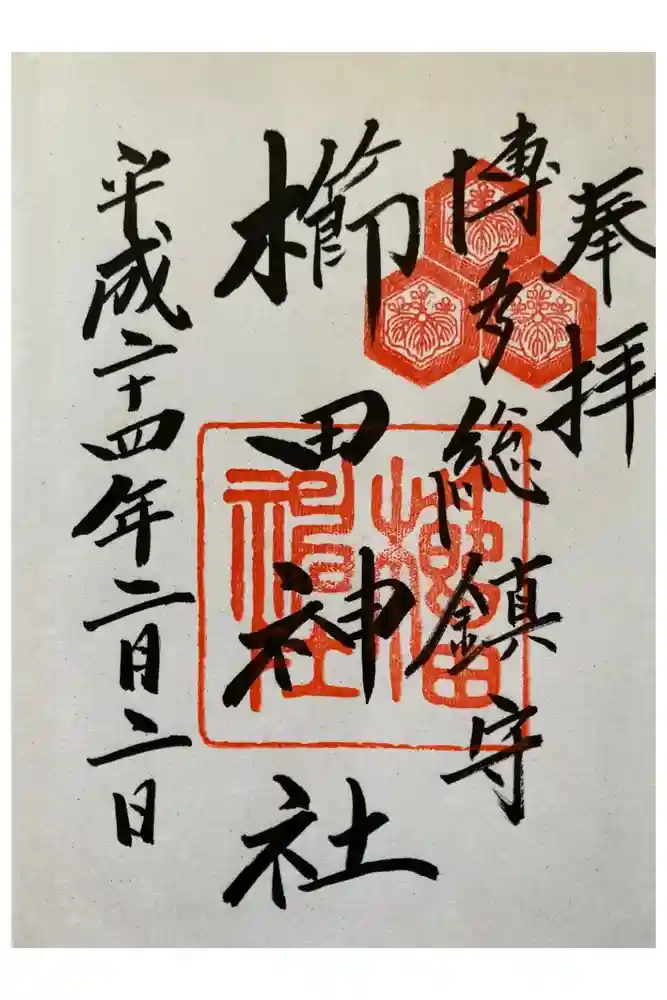 奉拝
博多総鎮守
櫛田神社
櫛田神社
平成二十四年二月二日